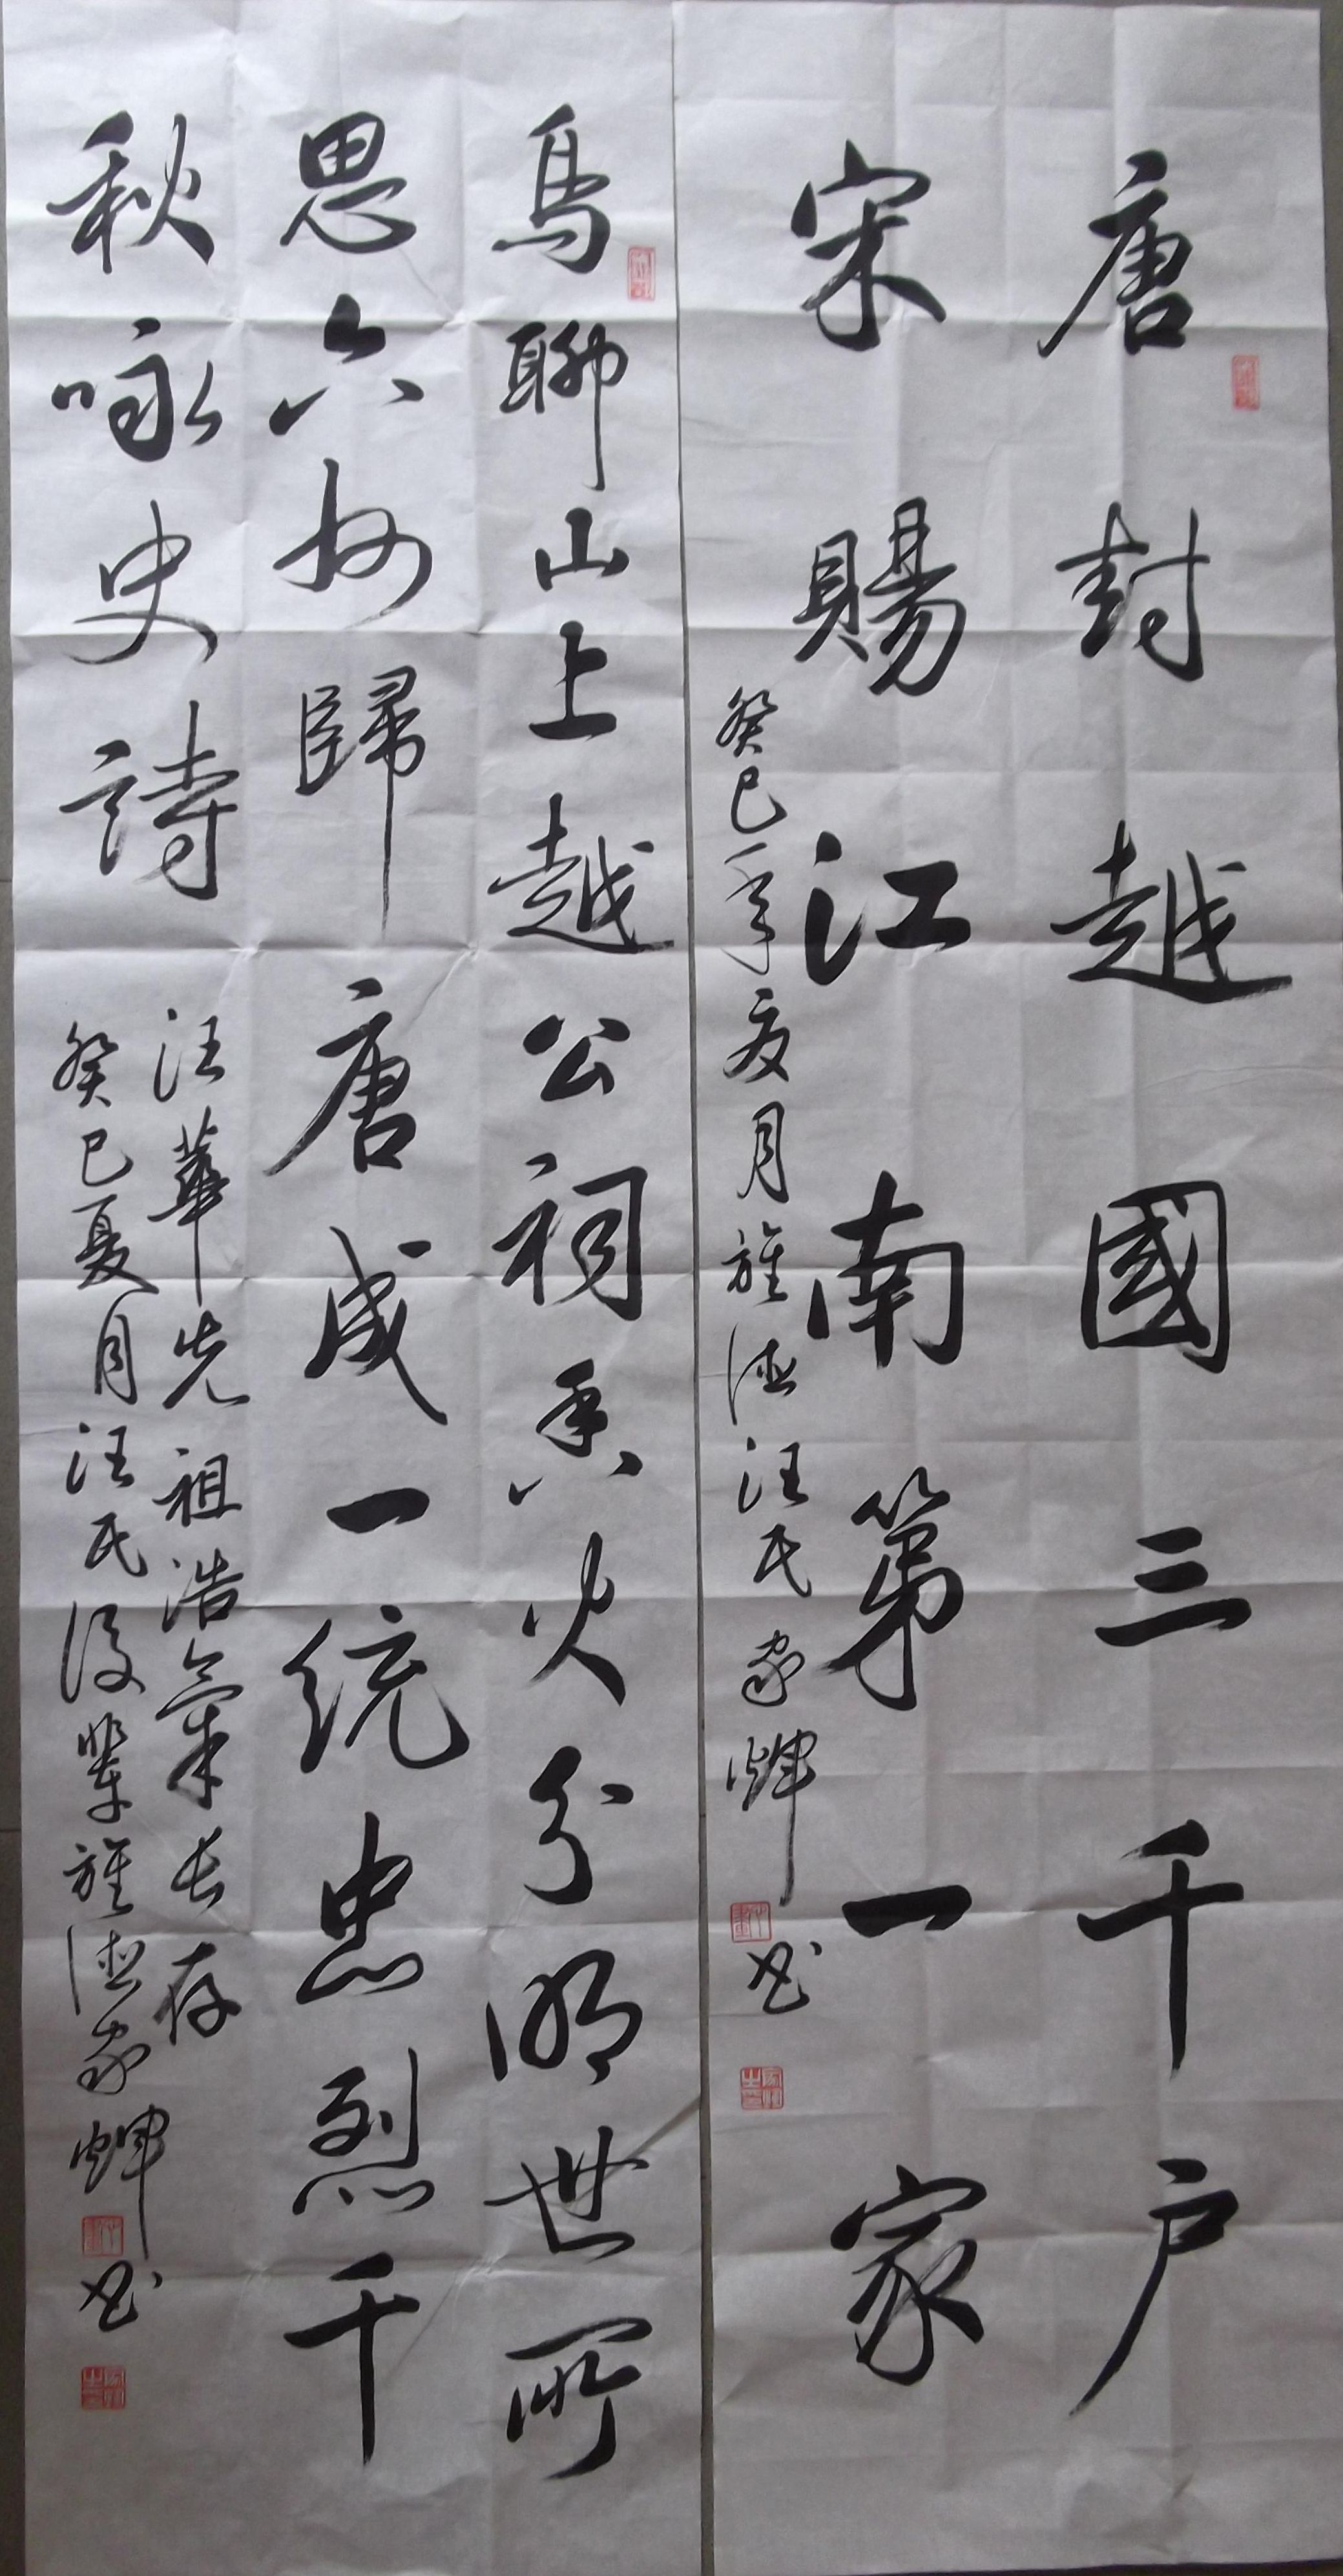 唐封越國三千户
宋賜江南第一家
癸巳年夏月旌德汪氏家輝书
烏聊山上越公祠香火分明世所
思六州歸唐成一统忠烈千
秋咏史詩
汪華先祖浩氣长存
癸巳夏月汪氏後輩旌德家輝书